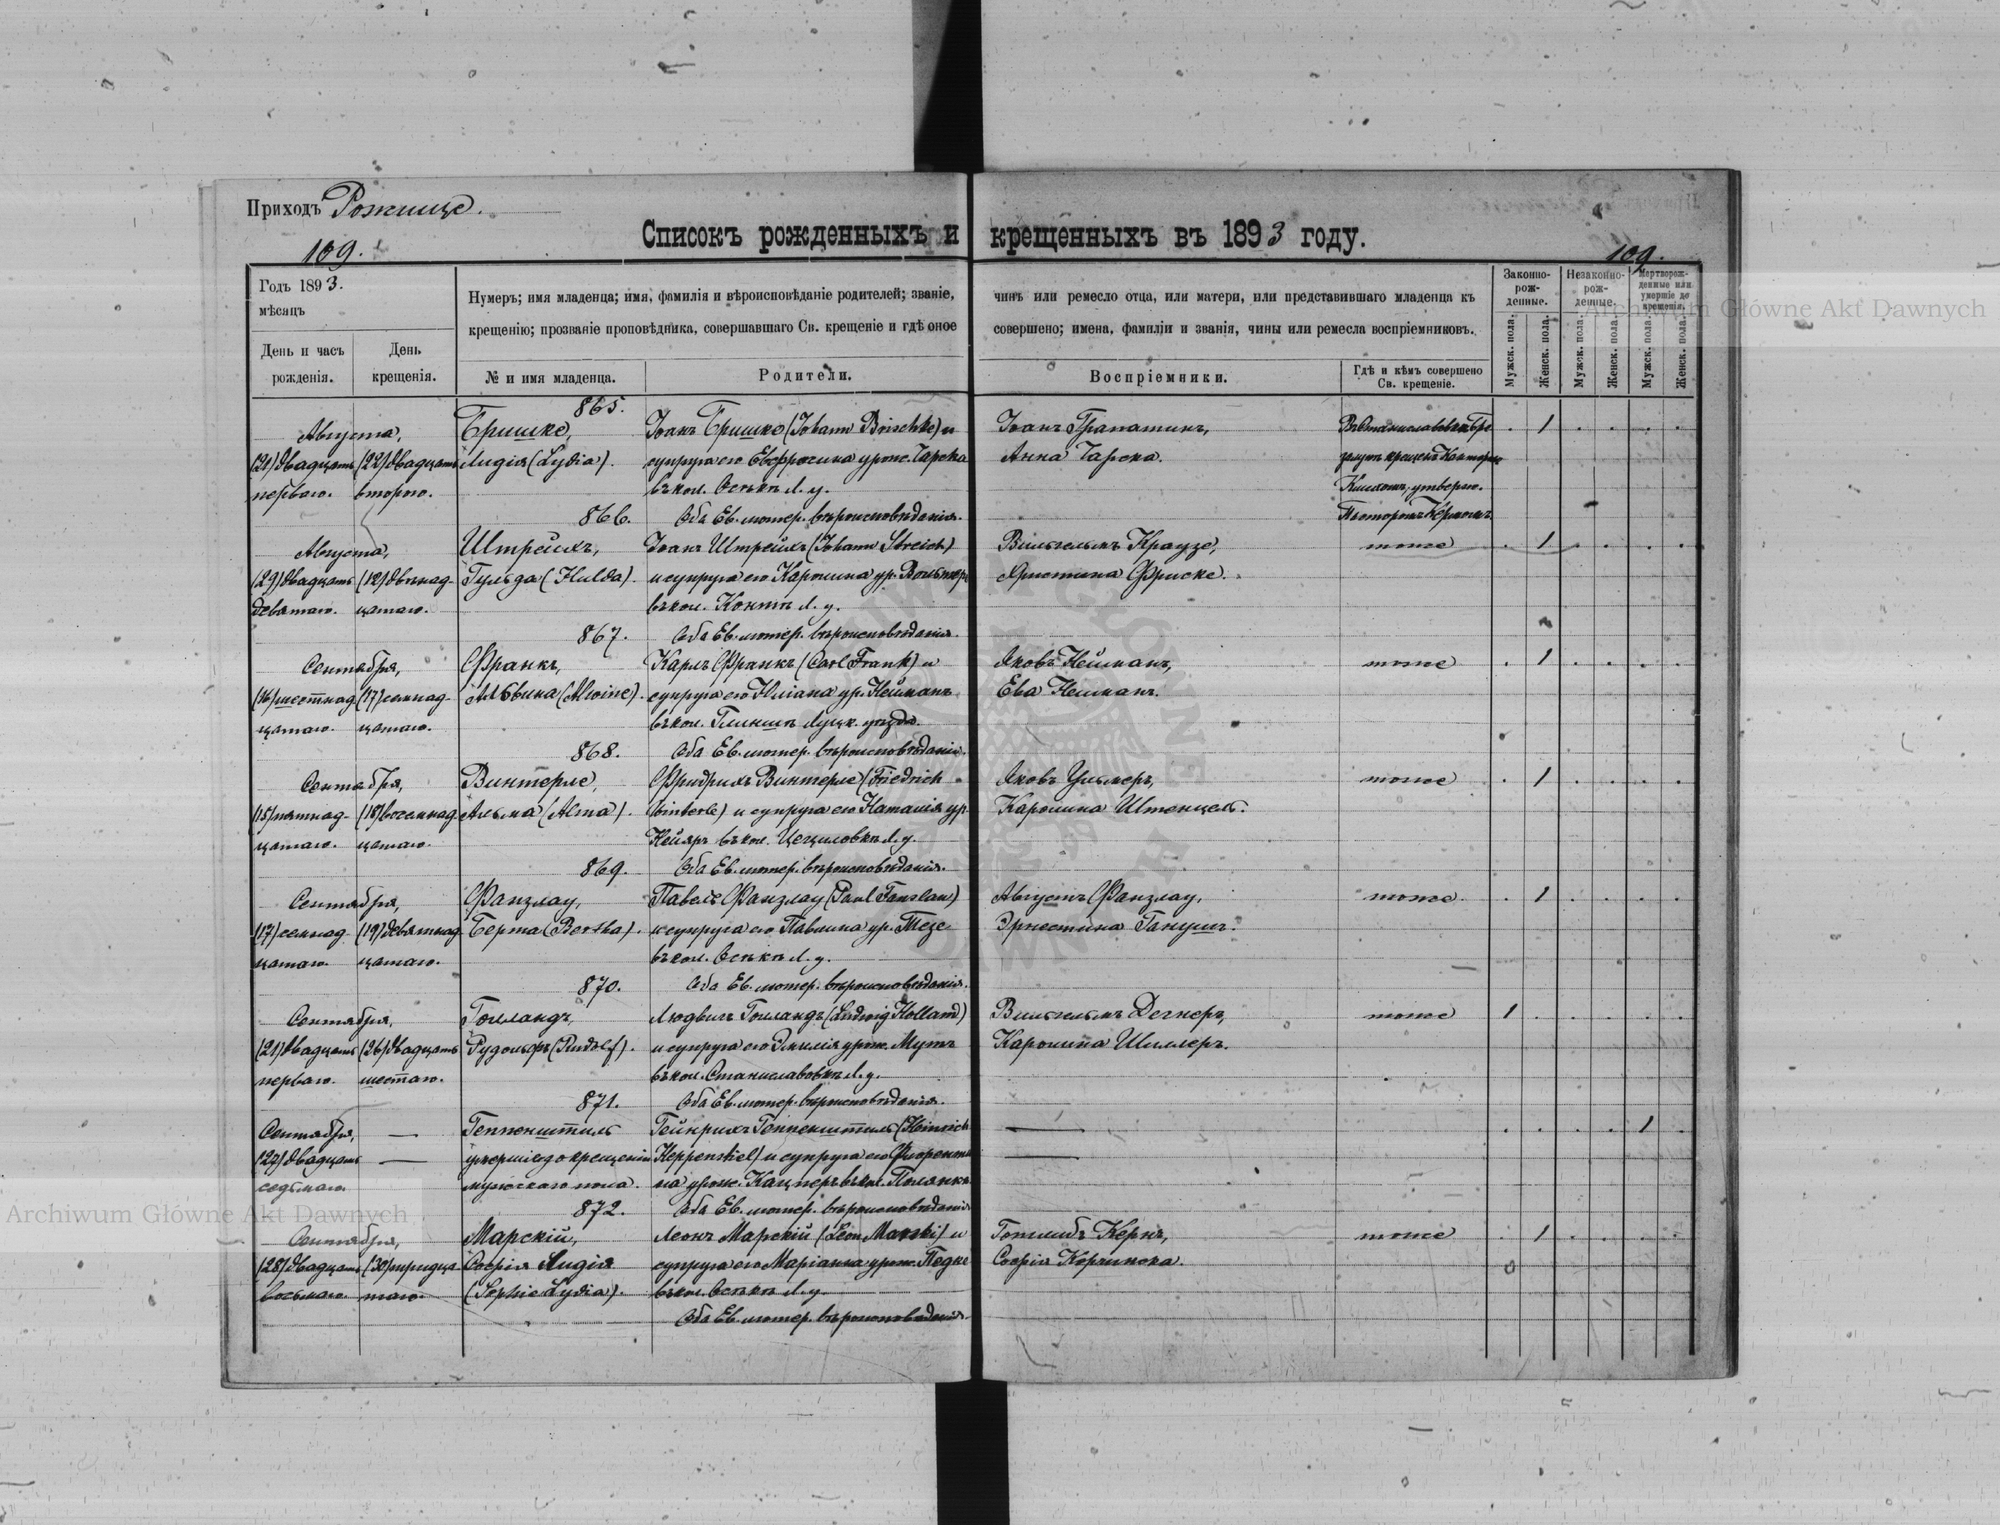 Приходъ Рожище.
109.
Списокъ рожденныхъ и крещенныхъ въ 1893 году.
109.
Годъ 1893.
мѣсяцъ
День и часъ рожденія.
День крещенія.
Нумеръ; имя младенца; имя, фамилія и вѣроисповѣданіе родителей; званіе, чинъ или ремесло отца, или матери, или представившаго младенца къ
крещенію; прозваніе проповѣдника, совершавшаго Св. крещеніе и гдѣ оное совершено; имена, фамиліи и званія, чины или ремесла воспріемниковъ.
№ и имя младенца.
Родители.
Воспріемники.
Гдѣ и кѣмъ совершено Св. крещеніе.
Законно-рож-денные.
Незаконно-рож-денные.
Мертворож-денные или умершіе до крещенія.
Мужск. пола.
Женск. пола.
Мужск. пола.
Женск. пола.
Мужск. пола.
Женск. пола.
865.
Августа,
(21) двадцать первого.
(22) двадцать второго.
Бришке,
Лидія (Lydia).
Іоанъ Бришке (Johann Brischke) и
супруга его Евфросина урож. Тарска
въ кол. Осѣкъ Л. у.
Оба Ев. лютер. вѣроисповѣданія.
Іоанъ Грапатинъ,
Анна Тарска.
Пасторомъ Керномъ.
1
866.
Августа,
(29) двадцать девятаго.
(12) двѣнад-цатаго.
Штрейхъ,
Гульда (Hulda).
Іоанъ Штрейхъ (Johann Streich)
и супруга его Каролина ур.
въ кол. Л. у.
Оба Ев. лютер. вѣроисповѣданія.
Вильгельмъ Краузе,
Христина Фриске.
тоже
1
867.
Сентября,
(16) шестнад-цатаго.
(17) семнад-цатаго.
Франкъ,
Альвина (Alwine).
Карлъ Франкъ (Carl Frank) и
супруга его Юліана ур. Нейманъ
въ кол. Глинищъ Луцк. уѣзда.
Оба Ев. лютер. вѣроисповѣданія.
Яковъ Нейманъ,
Ева Нейманъ.
тоже
1
868.
Сентября,
(15) пятнад-цатаго.
(18) восемнад-цатаго.
Винтерле,
Альма (Alma).
Фридрихъ Винтерле (Friedrich
Winterle) и супруга его Наталія ур.
въ кол. Цециловкѣ Л. у.
Оба Ев. лютер. вѣроисповѣданія.
Яковъ Ульмеръ,
Каролина Штенцель.
тоже
1
869.
Сентября,
(17) семнад-цатаго.
(19) девятнад-цатаго.
Фанзлау,
Берта (Bertha).
Павелъ Фанзлау (Paul Fanslau)
и супруга его Павлина ур. Тезе
въ кол. Осѣкъ Л. у.
Оба Ев. лютер. вѣроисповѣданія.
Августъ Фанзлау,
Эрнестина Ганушъ.
тоже.
1
870.
Сентября,
(21) двадцать перваго.
(26) двадцать шестаго.
Голландъ,
Рудольфъ (Rudolf).
Людвигъ Голландъ (Ludwig Holland)
и супруга его Эмилія урож. Мутъ
въ кол. Станиславовкѣ Л. у.
Оба Ев. лютер. вѣроисповѣданія.
Вильгельмъ Дегнеръ,
Каролина Шиллеръ.
тоже
1
871.
Сентября,
(27) двадцать седьмаго.
Геппенштиль
умершіе до крещенія
мужескаго пола.
Гейнрихъ Геппенштиль (Heinrich
Heppenstiel) и супруга его Флоренти
на урож. Кацперъ въ кол. Полянкѣ
Оба Ев. лютер. вѣроисповѣданія
1
872.
Сентября,
(28) двадцать восьмаго.
(30) тридца-таго.
Марскій,
Софія Лидія
(Sophie Lydia).
Леонъ Марскій (Leon Marski) и
супруга его Маріанна урож. Подке
въ кол. Осѣкъ Л. у.
Оба Ев. лютер. вѣроисповѣданія.
Готлибъ Кернъ,
Софія Корчинска.
тоже
1
Archiwum Główne Akt Dawnych
Archiwum Główne Akt Dawnych